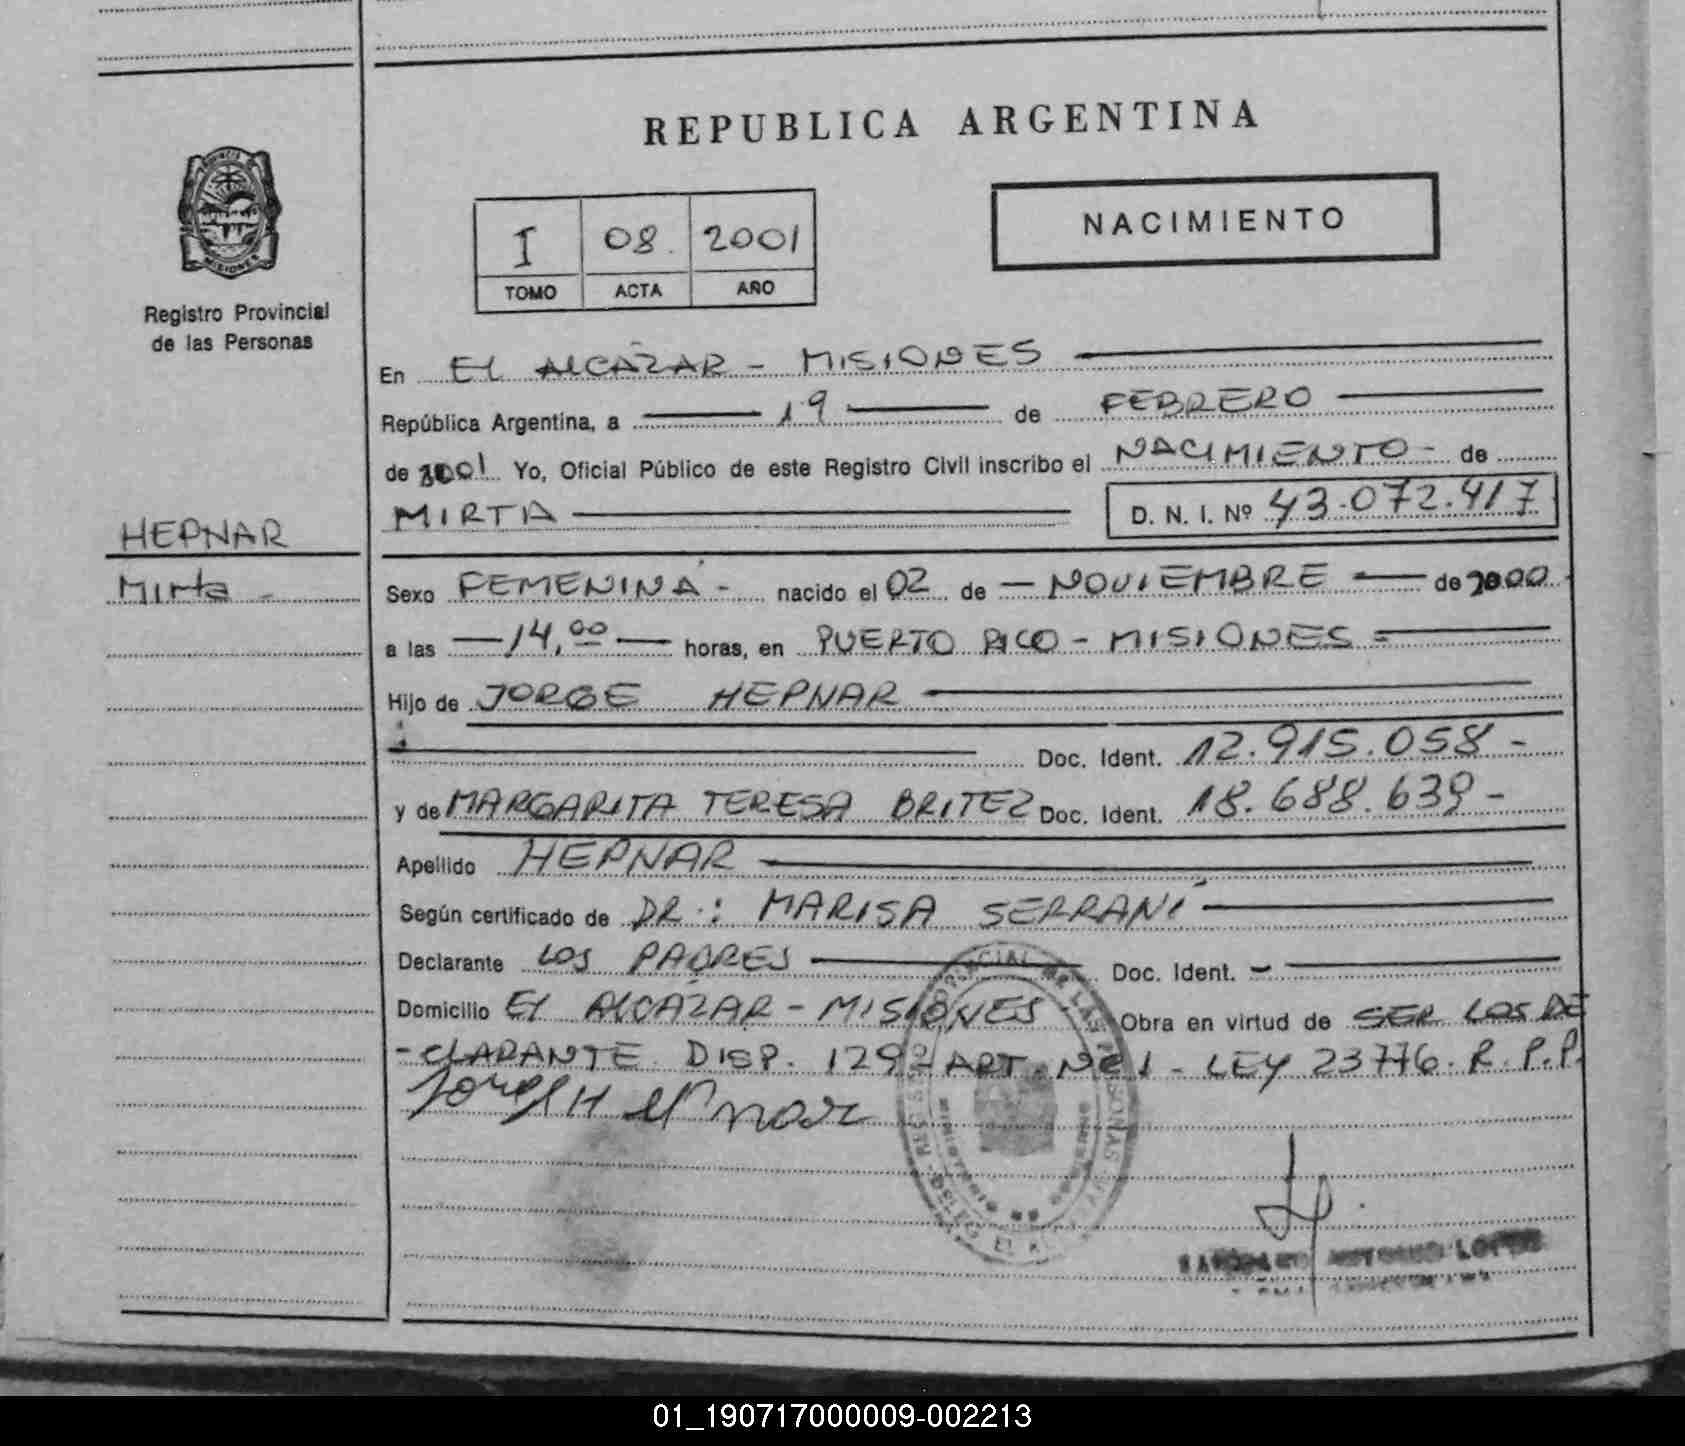 REPUBLICA ARGENTINA
PROVINCIA DE
MISIONES
Registro Provincial
de las Personas
NACIMIENTO
I 08. 2001
TOMO ACTA AÑO
En EL ALCAZAR - MISIONES
República Argentina, a 19 de FEBRERO
de 2001 Yo, Oficial Público de este Registro Civil inscribo el NACIMIENTO - de
MIRTA D. N. I. Nº 43.072.417
HEPNAR
Mirta -
Sexo FEMENINA - nacido el 02 de - NOVIEMBRE - de 2000
a las - 14,00 - horas, en PUERTO RICO - MISIONES -
Hijo de JORGE HEPNAR
Doc. Ident. 12.915.058 -
y de MARGARITA TERESA BRITEZ Doc. Ident. 18.688.639 -
Apellido HEPNAR
Según certificado de DR.: MARISA SERRANI
Declarante LOS PADRES Doc. Ident. -
Domicilio El ALCAZAR - MISIONES Obra en virtud de SER LOS DE
- CLARANTE. DISP. 1292 ART. Nº 1 - LEY 23776. R. P. P.
Jorge Hepnar
LOPEZ
01_190717000009-002213